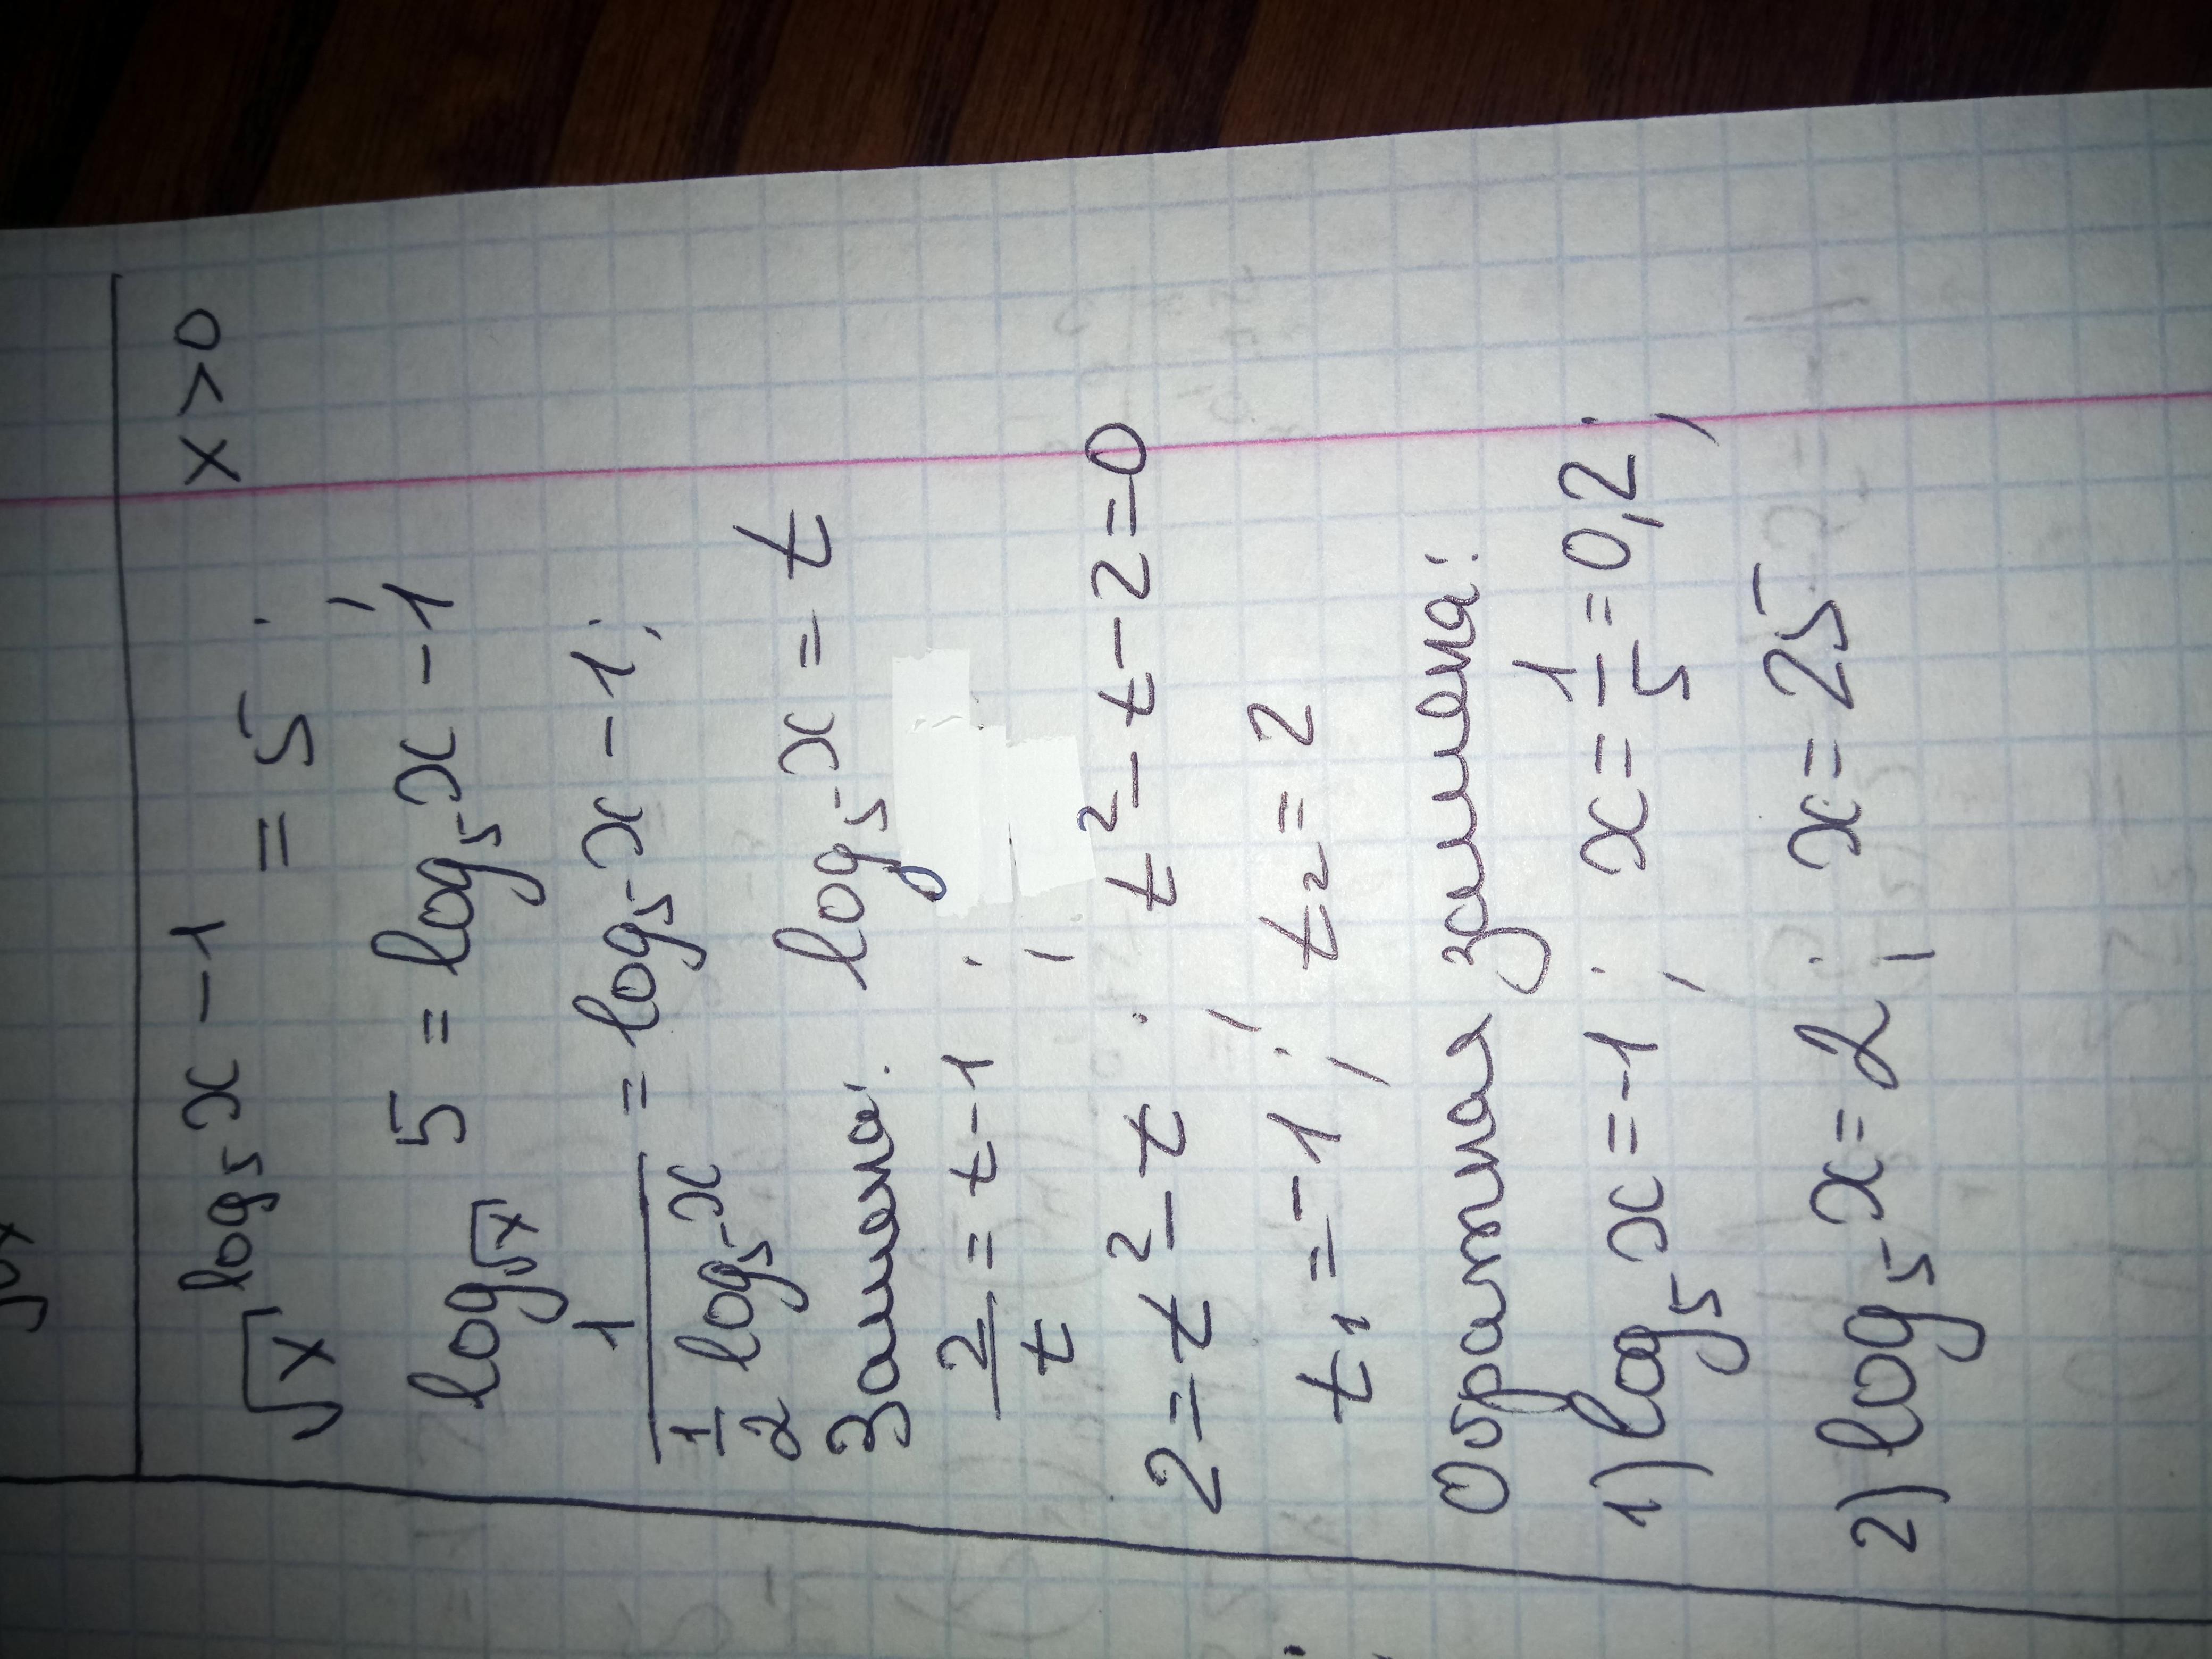 √x^(log₅x −1) = 5 ; x > 0
log_√x 5 = log₅x −1
1/(½ log₅x) = log₅x −1;
Замена: log₅x = t
2/t = t−1 ;
2 = t² − t ; t² − t − 2 = 0
t₁ = −1 ; t₂ = 2
Обратная замена:
1) log₅x = −1 ; x = 1/5 = 0,2 ;
2) log₅x = 2 ; x = 25